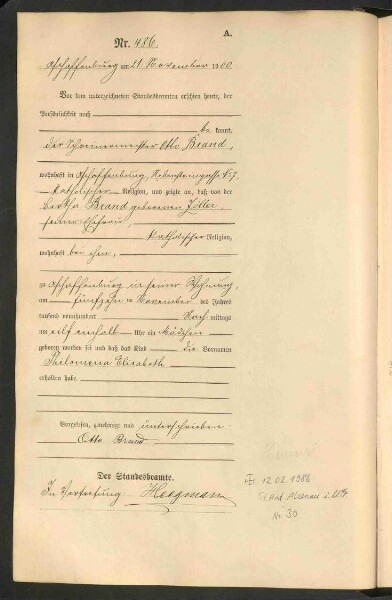 A.
Nr. 486.
Aschaffenburg am 21 November 1900
Vor dem unterzeichneten Standesbeamten erschien heute, der
Persönlichkeit nach
be kannt,
der Schreinermeister Otto Brand,
wohnhaft in Aschaffenburg,
katholischer Religion, und zeigte an, daß von der
Bertha Brand geborenen Zöller,
seiner Ehefrau,
katholischer Religion,
wohnhaft bei ihm,
zu Aschaffenburg in seiner Wohnung,
am fünfzehn ten November des Jahres
tausend neunhundert Nach mittags
um elf einhalb Uhr ein Mädchen
geboren worden sei und daß das Kind die Vornamen
Philomena Elisabeth
erhalten habe.
Vorgelesen, genehmigt und unterschrieben
Otto Brand
Der Standesbeamte.
In Vertretung
12.02.1986
Nr. 30